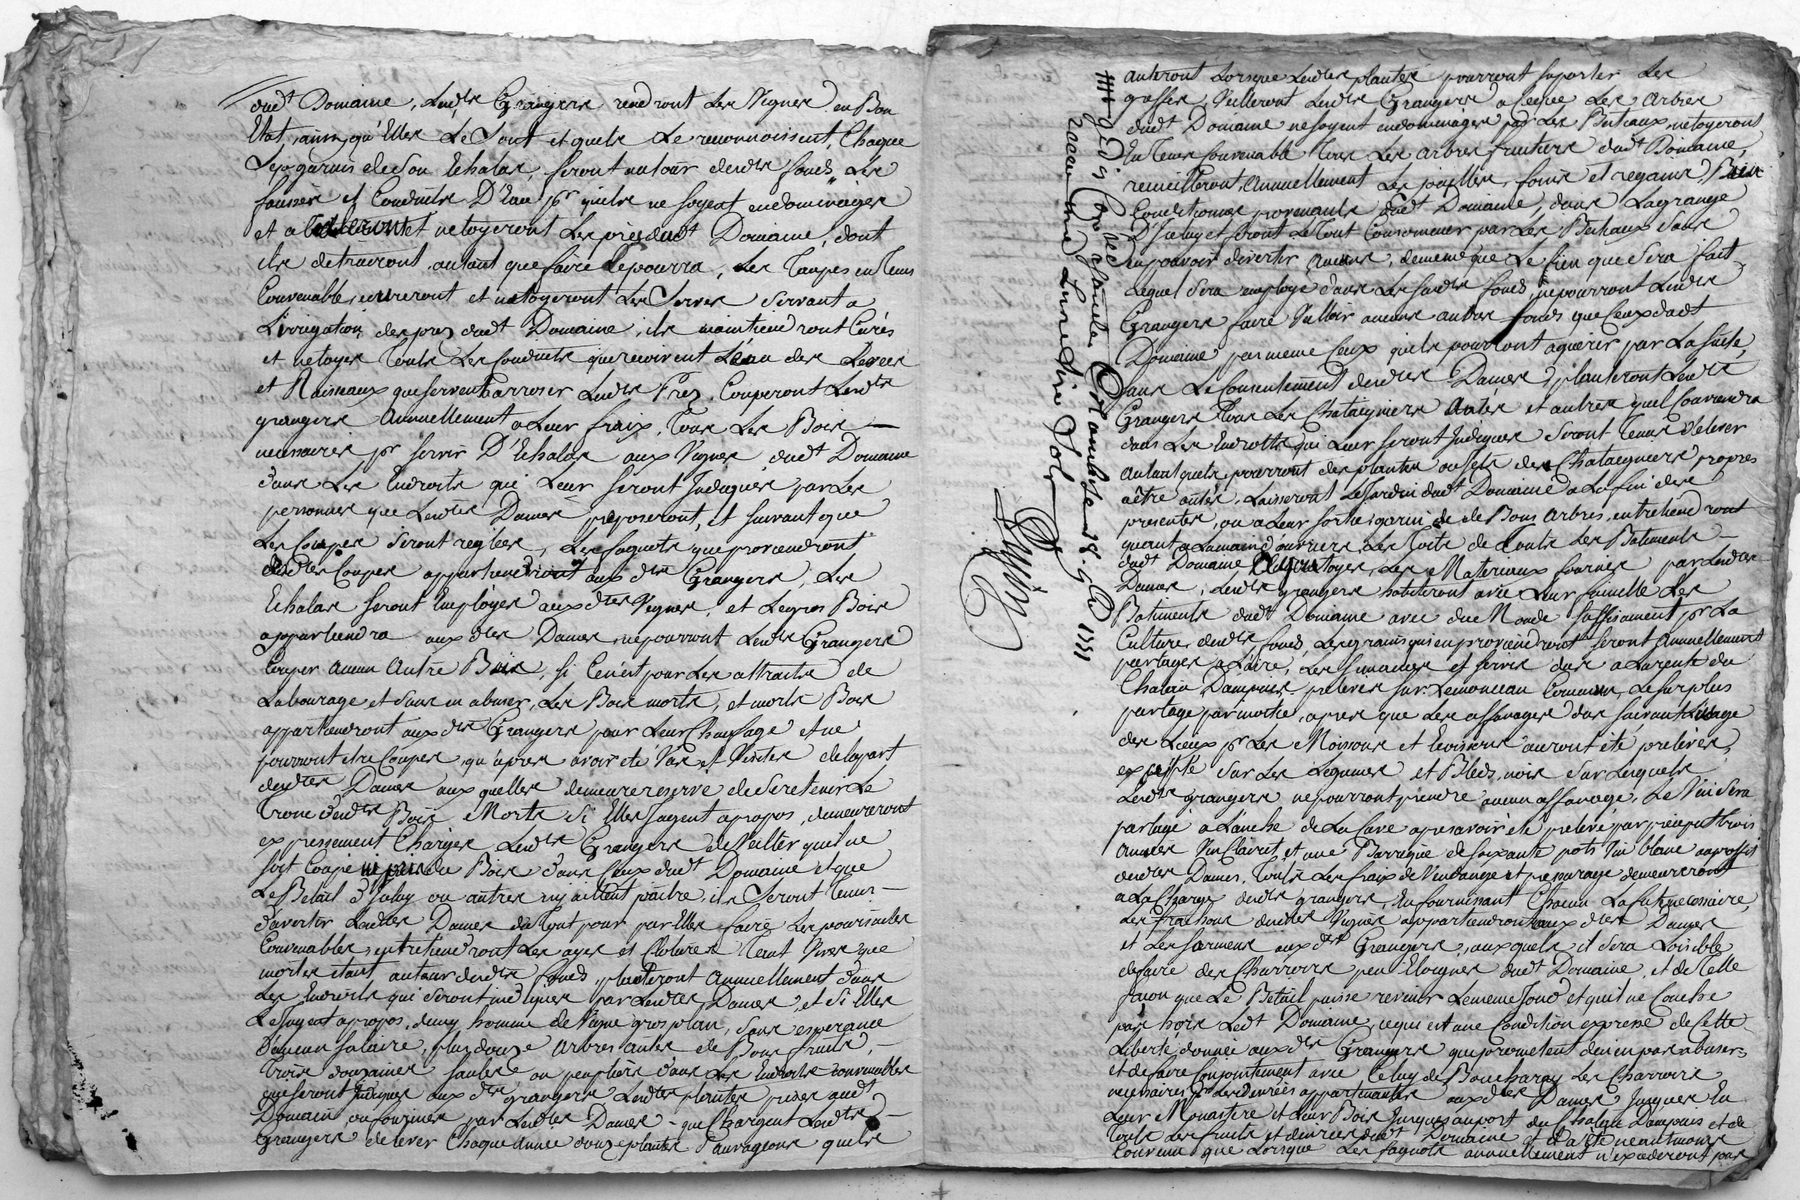 dudt Domaine, Lesdts Grangers rendront Les Vignes en Bon
Etat, ainsy qu'Elles Le Sont et quils Le reconnoissent, Chaque
Sep garnis de Son Echalas, feront autour desdts fonds Les
fossés et Conduits D'Eau pr quils ne soyent endommagés
et netoyeront Les prés dudt Domaine, dont
ils detruiront autant que faire Sepourra, Les Taupes en Tems
Convenable, cureront et netoyeront Les Serves Servant a
L'irrigation des prez dudt Domaine, ils maintiendront Curés
et netoyés Touts Les Conduits qui recoivent L'eau des Levées
et Ruisseaux qui servent a arroser Lesdts Prez, Couperont Lesdts
grangers Annuellement a Leur fraix, Tous Les Bois
necessaires pr servir D'Echalas aux Vignes dudt Domaine
dans Les Endroits qui Leur seront Indiqués par Les
personnes que Lesdtes Dames preposeront, et suivant que
Les Coupes Seront reglées, Les fagots que proviendront
desdtes Coupes appartiendront aux dts Grangers, Les
Echalas seront Employés aux dtes Vignes, et Le gros Bois
appartiendra aux dtes Dames, ne pourront Lesdts Grangers
Couper Aucun Autre Bois, si Ce n'est pour Les attraits de
Labourage et Sans en abuser, Les Bois morts, et morts Bois
appartiendront aux dts Grangers pour Leur Chaufage et ne
pourront etre Coupés, qu'apres avoir été Vus et Visités de la part
desdtes Dames aux quelles demeure reservé de Se retenir Le
Tronc desdts Bois Morts Si Elles Jugent apropos, demeureront
expressement Chargés Lesdts Grangers de Veiller quil ne
soit Coupé du Bois dans Ceux dudt Domaine et que
Le Betail d'Iceluy ou autres ny aillent paitre, ils Seront Tenus
d'avertir Lesdtes Dames du Tout pour par Elles faire Les poursuites
Convenables, entretiendront Les ayes et Clotures Tant Vives que
mortes etant autour desdts fonds, planteront Annuellement dans
Les Endroits qui Seront indiqués par Lesdtes Dames, et Si Elles
Le Jugent apropos, deux hommes de Vigne gros plan, Sans esperance
D'aucun salaire, plus douze arbres antés de Bons fruits,
Trois douzaines saules ou peupliers dans Les Endroits convenables
que seront Indiqués aux dts grangers Lesdtes plantes prises audt
Domaine ou fournies par Lesdtes Dames que Chargent Lesdts
Grangers delever Chaque Année douze plantes Sauvageons quils
anteront Lorsque Lesdtes plantes pourront suporter Les
greffes, Veilleront Lesdts Grangers a ce que Les Arbres
dudt Domaine ne soyent endommagés par Les Bestiaux, netoyeront
En Tems Convenable Tous Les arbres fruitiers dudt Domaine,
recueilleront, Annuellement Les pailles, foins et regains Bien
Conditionnés provenants dudt Domaine, dans La grange
D'Iceluy et feront Le Tout Consommer par Les Bestiaux Sans
en pouvoir divertir Aucuns, de meme que Le fien que Sera fait
Lequel Sera employé dans Lesdts fonds, ne pourront Lesdts
Grangers faire Valloir aucuns autres fonds que Ceux dudt
Domaine, pas meme Ceux quils pourront aquérir par La suite,
sans Le Consentement desdtes Dames, planteront Lesdts
Grangers Tous Les Chataigniers Antés et autres quil Conviendra
dans Les Endroits qui Leur seront Indiqués Seront Tenus d'Elever
Autant quils pourront des plantes ou jets de Chataigniers propres
a être antés, Laisseront Le Jardin dudt Domaine a La fin des
presentes, ou a Leur sortie, garni de Bons Arbres, entretiendront
quant a La main d'ouvriers, Les Toits de Touts Les Batiments
dudt Domaine, Les Materiaux fournis par Lesdtes
Dames, Lesdts grangers habiteront avec Leur famille Les
Batiments dudt Domaine avec du Monde Suffisament pr La
Culture desdts fonds, Les grains qui en proviendront seront Annuellement
partagés a L'aire, Les Semences et servis dus a La rente du
Chateau Dampuis prelevés sur Le monceau Commun, Le surplus
partagé par moitié, apres que Les affanages dus suivant L'usage
des Lieux pr Les Moissons et Ecossures auront été prelevés,
excepté Sur Les Legumes et Bleds noirs Sur Lesquels
Lesdts grangers ne pourront prendre aucun affanage, Le Vin Sera
partagé a L'anche de La Cuve apres avoir été prelevé par preciput trois
Anées Vin Clairet, et une Barrique de soixante pots Vin blanc au proffit
desdtes Dames, Touts Les fraix de Vendange et pressurage demeureront
a La Charge desdts grangers, En fournissant Chacun La futaille necessaire,
Les desdites Vignes appartiendront aux dtes Dames
et Les sarmens aux dts Grangers, aux quels il Sera Loisible
de faire des Charrois peu Eloignés dudt Domaine, et de Telle
façon que Le Betail puisse revenir Le meme Jour et quil ne Couche
pas hors Ledt Domaine, ce qui est une Condition expresse de Cette
Liberté donnée aux dts Grangers qui promettent de n'en pas abuser,
et de faire Conjointement avec Celuy de Boucharay Les Charrois
necessaires pr Les denrées appartenantes aux dtes Dames Jusques En
Leur Monastere et Leur Bois Jusques au port du Chateau Dampuis et de
Touts Les fruits et denrées dudt Domaine, et a été neantmoins
Convenu que Lorsque Les fagots annuellement n'excederont pas
9bre 1771